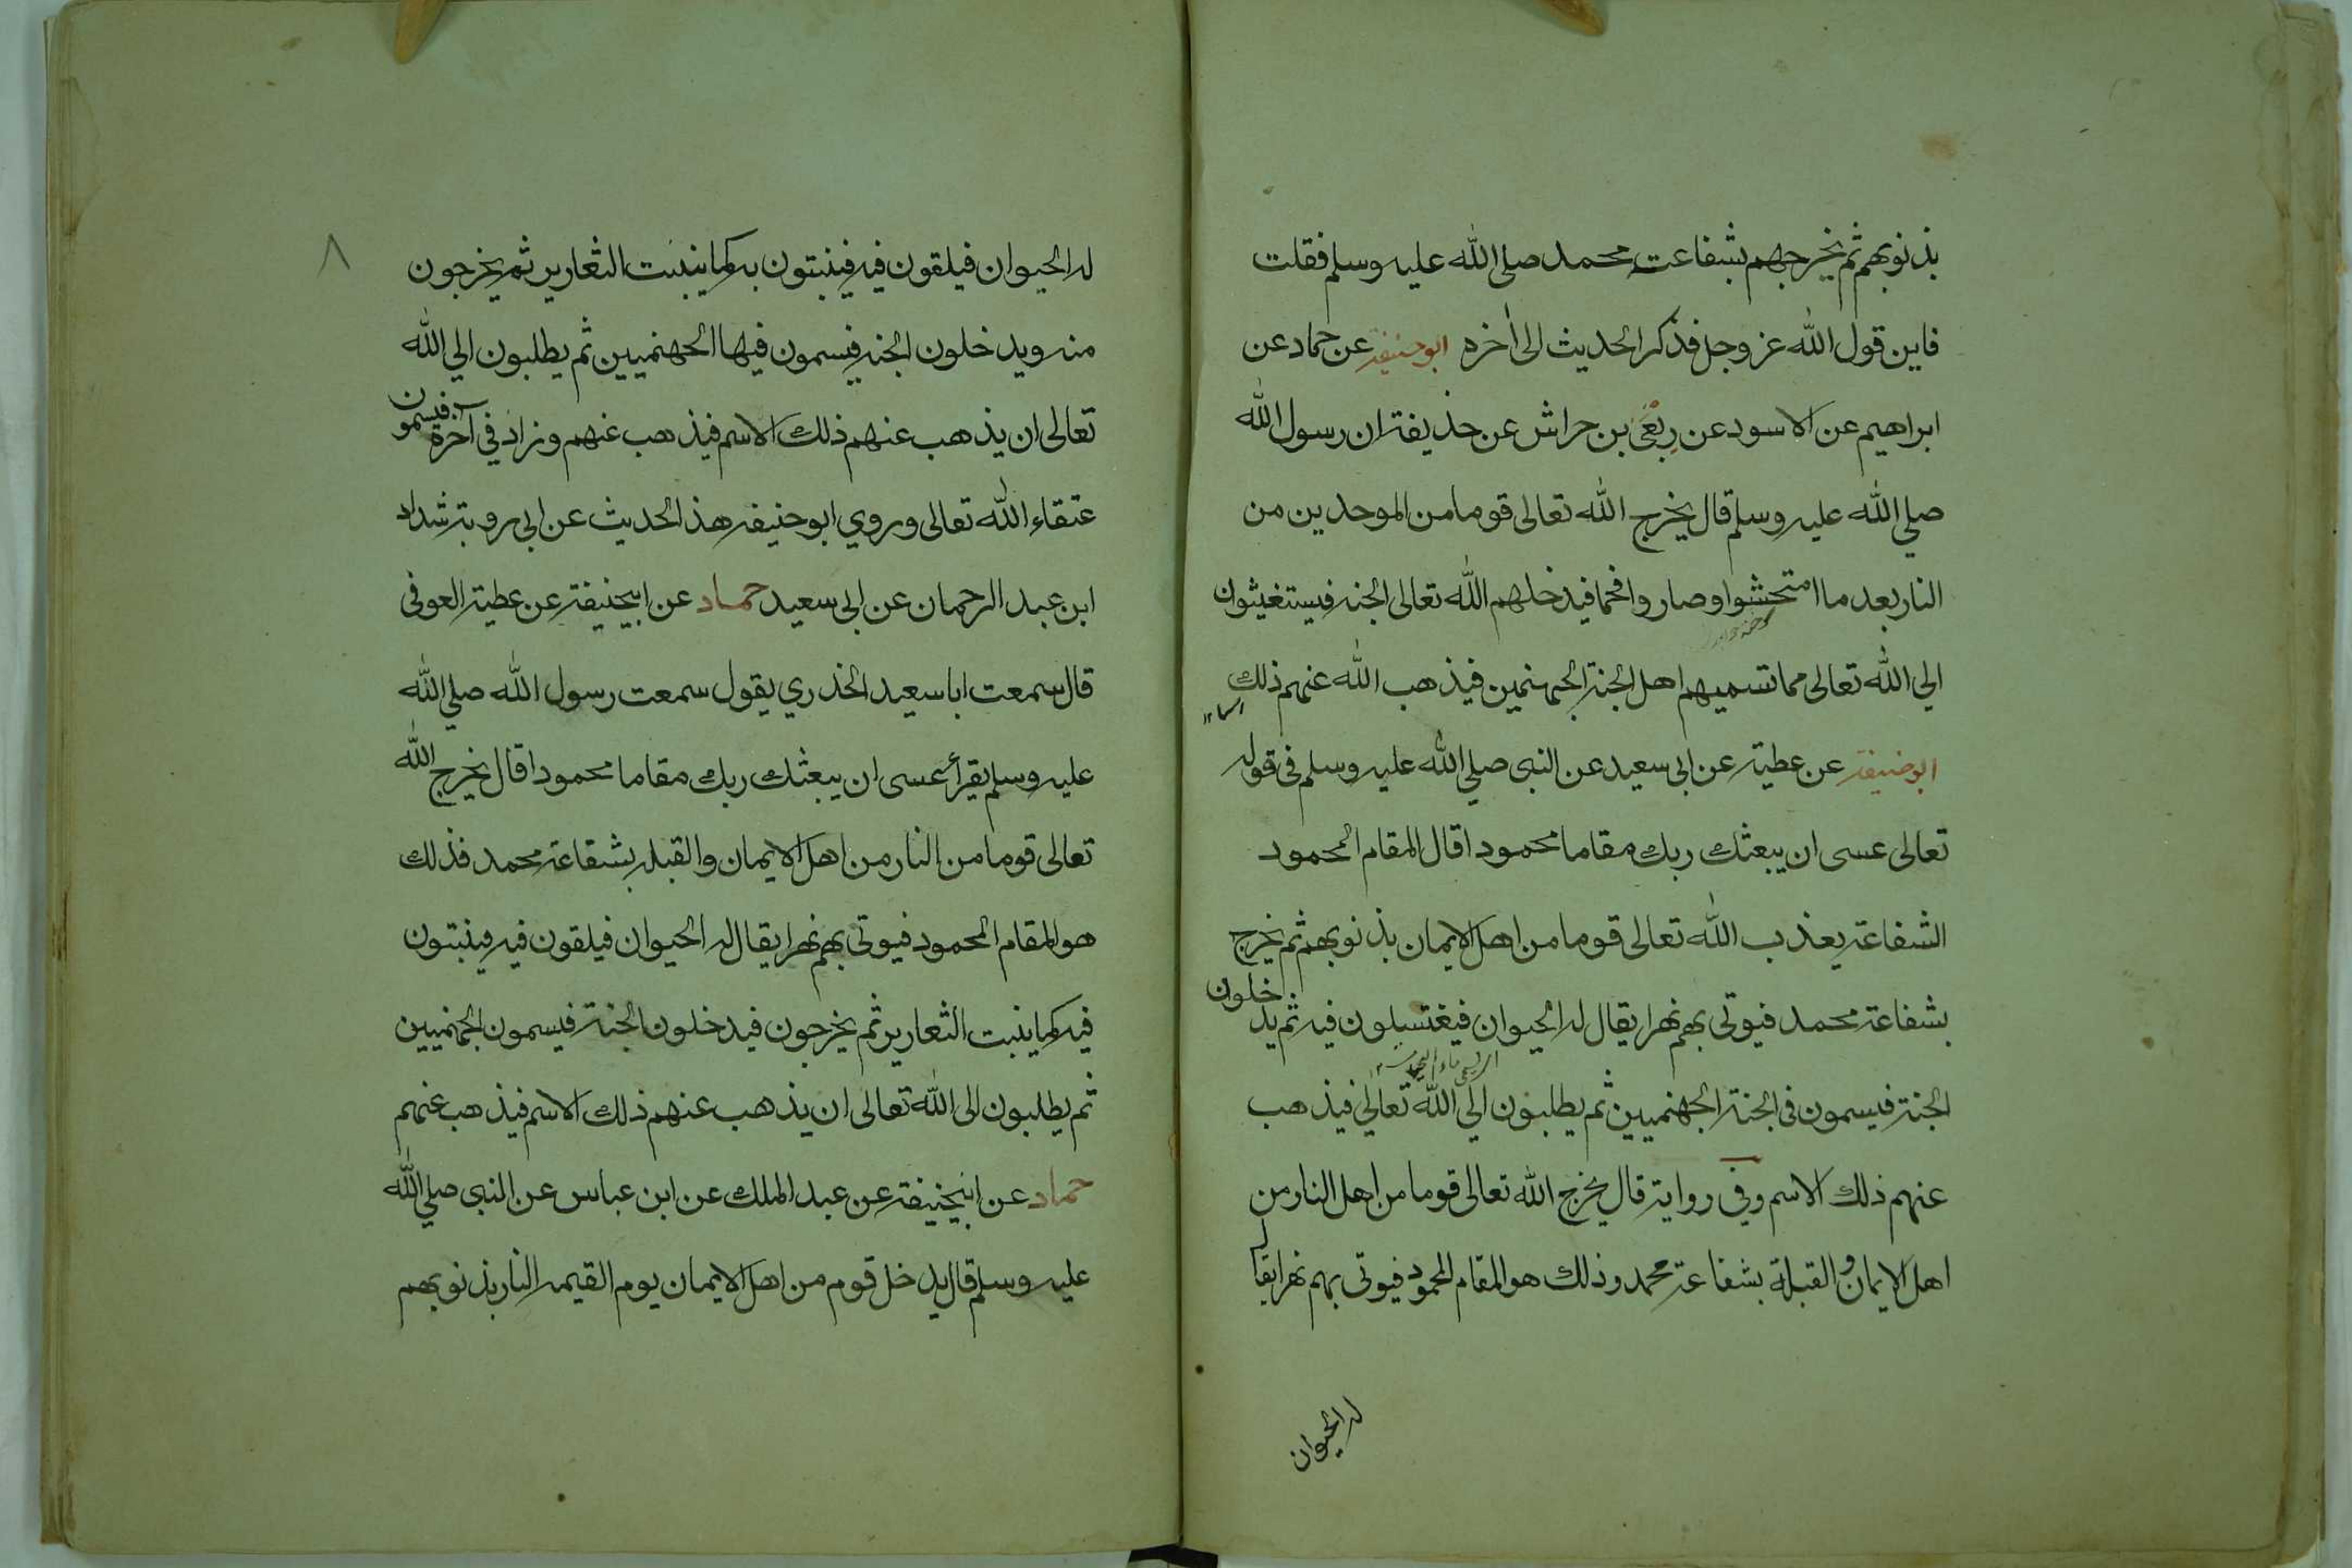 بذنوبهم ثم يخرجهم بشفاعت محمد صلى الله عليه وسلم فقلت
فاين قول الله عز وجل فذكر الحديث الى اخره ابوحنيفة عن حماد عن
ابراهيم عن الاسود عن ربعي بن حراش عن حذيفة ان رسول الله
صلي الله عليه وسلم قال يخرج الله تعالى قوما من الموحدين من
النار بعد ما امتحشوا وصاروا فحما فيدخلهم الله تعالى الجنه فيستغيثون
الي الله تعالى مما تسميهم اهل الجنة الجهنمين فيذهب الله عنهم ذلك
ابوحنيفة عن عطية عن ابي سعيد عن النبي صلي الله عليه وسلم في قوله
تعالى عسى ان يبعثك ربك مقاما محمودا قال المقام المحمود
الشفاعة يعذب الله تعالى قوما من اهل الايمان بذنوبهم ثم يخرج
بشفاعة محمد فيوتى بهم نهرا يقال له الحيوان فيغتسلون فيه ثم يدخلون
الجنة فيسمون في الجنة الجهنميين ثم يطلبون الي الله تعالي فيذهب
عنهم ذلك الاسم وفي رواية قال يخرج الله تعالى قوما من اهل النار من
اهل الايمان و القبلة بشفاعة محمد وذلك هو المقام المحمود فيوتى بهم نهرا يقال
له الحيوان
٨
له الحيوان فيلقون فيه فينبتون به كما ينبت الثعارير ثم يخرجون
منه ويدخلون الجنه فيسمون فيها الجهنميين ثم يطلبون الي الله
تعالى ان يذهب عنهم ذلك الاسم فيذهب عنهم وزاد في آخره فيسمون
عتقاء الله تعالى وروي ابوحنيفه هذ الحديث عن ابي روبة شداد
ابن عبد الرحمان عن ابي سعيد حماد عن ابيحنيفة عن عطية العوفي
قال سمعت ابا سعيد الخذري يقول سمعت رسول الله صلي الله
عليه وسلم يقرأ عسى ان يبعثك ربك مقاما محمودا قال يخرج الله
تعالى قوما من النار من اهل الايمان والقبله بشفاعة محمد فذلك
هو المقام المحمود فيوتى بهم نهرا يقال له الحيوان فيلقون فيه فينبتون
فيه كما ينبت الثعارير ثم يخرجون فيدخلون الجنة فيسمون الجهنميين
ثم يطلبون الى الله تعالى ان يذهب عنهم ذلك الاسم فيذهب عنهم
حماد عن ابيحنيفة عن عبد الملك عن ابن عباس عن النبي صلي الله
عليه وسلم قال يدخل قوم من اهل الايمان يوم القيمه النار بذنوبهم